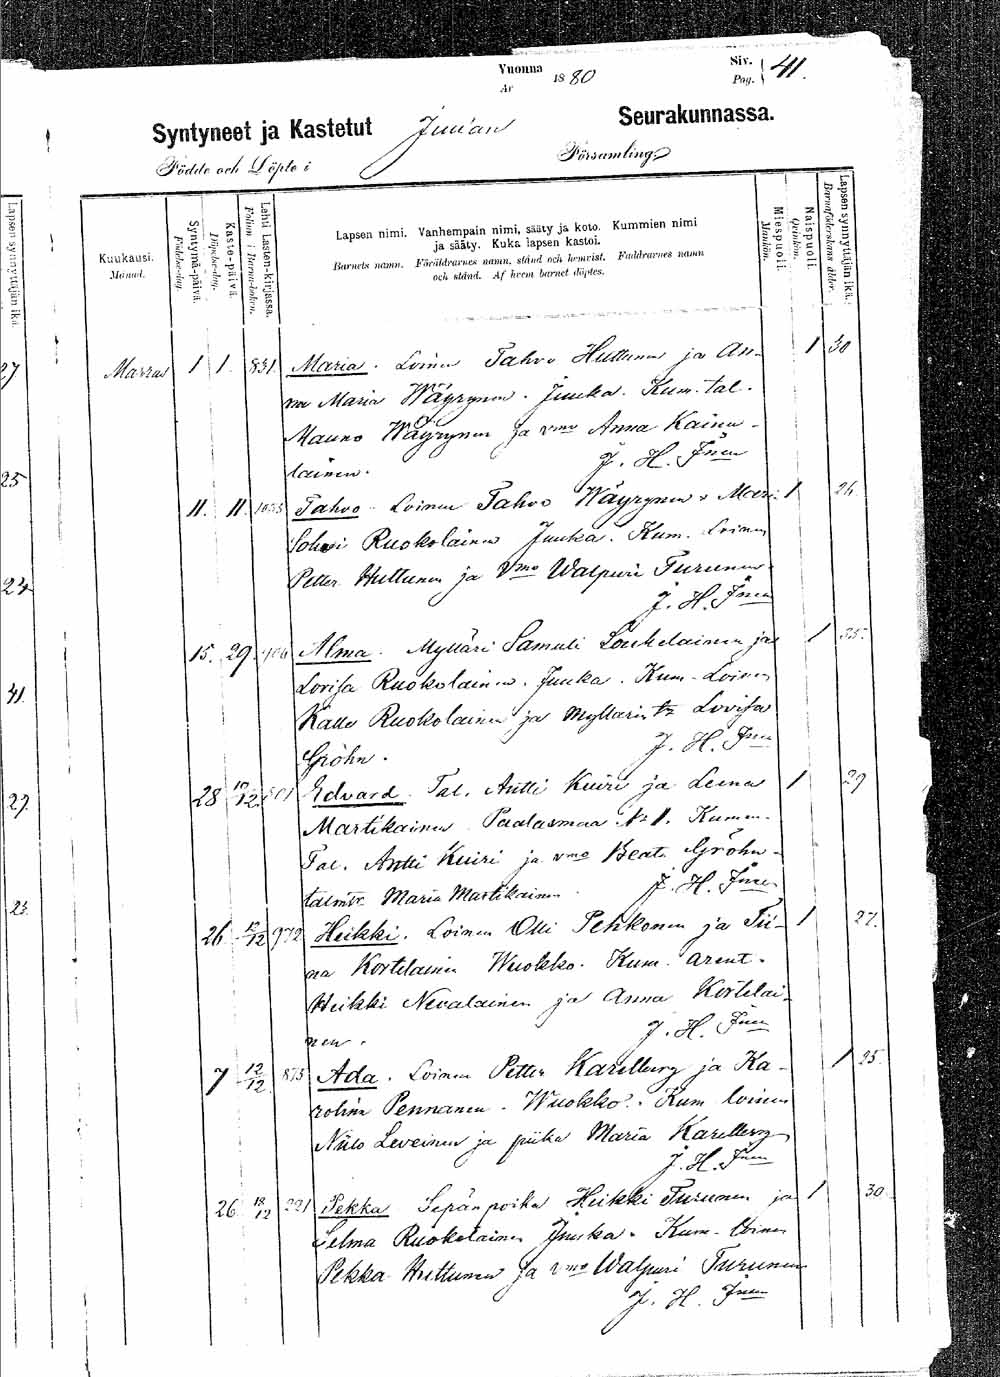 Vuonna 1880 Siv. 41.
År Pag.
Syntyneet ja Kastetut Juuan Seurakunnassa.
Födde och Döpte i Församling.
Kuukausi.
Månad.
Syntymä-päivä.
Födelse-dag.
Kaste-päivä.
Döpelse-dag.
Lehti Lasten-kirjassa.
Folium i Barna-boken.
Lapsen nimi. Vanhempain nimi, sääty ja koto. Kummien nimi
ja sääty. Kuka lapsen kastoi.
Barnets namn. Föräldrarnes namn, stånd och hemvist. Faddrarnes namn
och stånd. Af hvem barnet döptes.
Miespuoli.
Mankön.
Naispuoli.
Qvinkön.
Lapsen synnyttäjän ikä.
Barnaföderskans ålder.
Lapsen synnyttäjän ikä.
Marras 1 1. 831. Maria. Loinen Tahvo Huttunen ja An- 1 30
na Maria Wäyrynen. Juuka. Kum. tal.
Mauno Wäyrynen ja vmo Anna Kainu-
lainen. J. H. Jnen
11. 11. 1053 Tahvo. Loinen Tahvo Wäyrynen & Mari 1 26.
Sohvi Ruokolainen Juuka. Kum. Loinen
Petter Huttunen ja Vmo Walpuri Turunen.
J. H. Jnen
15. 29. 406 Alma. Mylläri Samuli Loukelainen ja 1 35.
Lovisa Ruokolainen. Juuka. Kum. Loinen
Kalle Ruokolainen ja Myllarin tr Lovisa
Gröhn. J. H. Jnen
28 12/12. 501 Edvard. Tal. Antti Kuiri ja Leena 1 29
Martikainen Paalasmaa № 1. Kumm.
Tal. Antti Kuiri ja vmo Beata Gröhn
talntr Maria Martikainen. J. H. Jnen
26 12/12 972 Heikki. Loinen Olli Pehkonen ja Tii- 1 27.
na Kortelainen Wuokko. Kum. arent.
Heikki Nevalainen ja Anna Kortelai-
nen. J. H. Jnen
7 12/12. 875 Ada. Loinen Petter Karelberg ja Ka- 1 25.
rolina Pennanen. Wuokko. Kum loinen
Niilo Leveinen ja piika Maria Karelberg
J. H. Jnen
26 18/12 221 Pekka Sepän poika Heikki Turunen ja 1 30
Selma Ruokolainen Juuka. Kum. Loinen
Pekka Huttunen ja vmo Walpuri Turunen
J. H. Jnen
27
25
24
41.
29.
23.